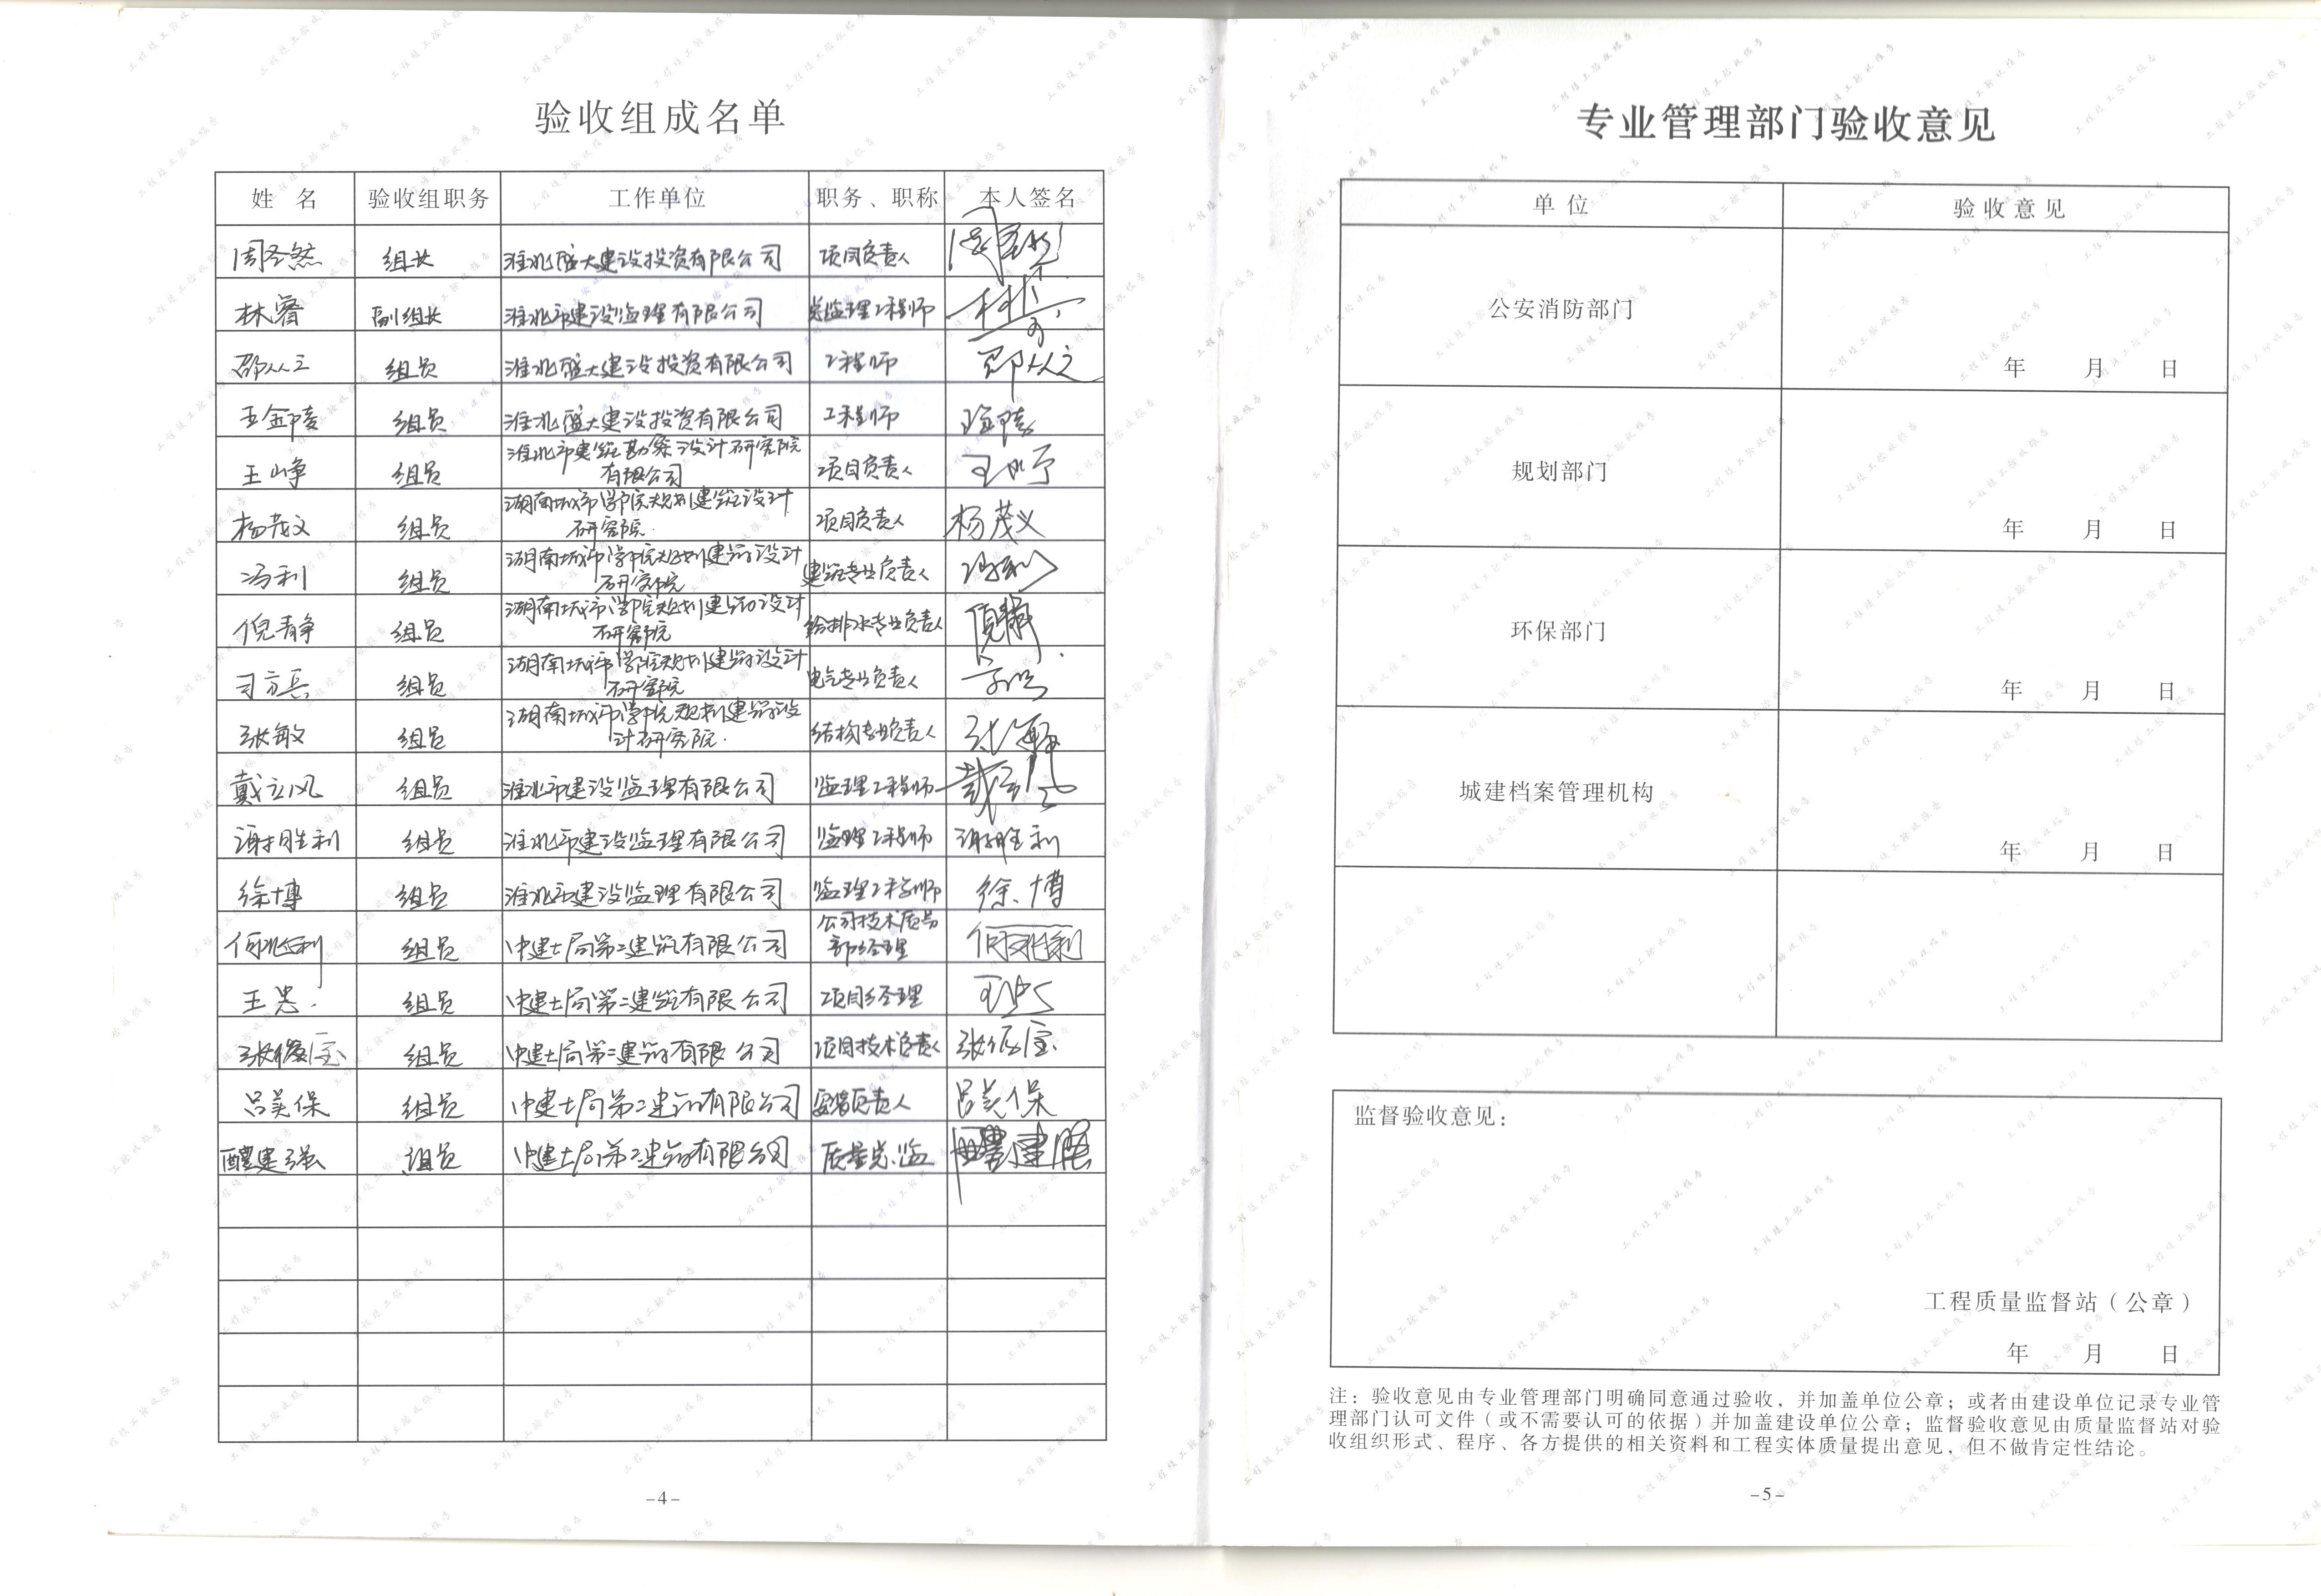 验收组成名单
姓 名 验收组职务 工作单位 职务、职称 本人签名
周圣然 组长 淮北盛大建设投资有限公司 项目负责人
林睿 副组长 淮北市建设监理有限公司 总监理工程师
邵从立 组员 淮北盛大建设投资有限公司 工程师 邵从立
王金陵 组员 淮北盛大建设投资有限公司 工程师
王峥 组员 淮北市建筑勘察设计研究院
有限公司 项目负责人 王峥
杨茂义 组员 湖南城市学院规划建筑设计
研究院 项目负责人 杨茂义
冯利 组员 湖南城市学院规划建筑设计
研究院 建筑专业负责人 冯利
倪静 组员 湖南城市学院规划建筑设计
研究院 给排水专业负责人 倪静
司方兵 组员 湖南城市学院规划建筑设计
研究院 电气专业负责人
张敏 组员 湖南城市学院规划建筑设
计研究院 结构专业负责人 张敏
戴立风 组员 淮北市建设监理有限公司 监理工程师 戴立风
谢胜利 组员 淮北市建设监理有限公司 监理工程师 谢胜利
徐博 组员 淮北市建设监理有限公司 监理工程师 徐博
何兆利 组员 中建七局第二建筑有限公司 公司技术质量
部经理 何兆利
王忠 组员 中建七局第二建筑有限公司 项目经理
组员 中建七局第二建筑有限公司 项目技术负责人
吕美保 组员 中建七局第二建筑有限公司 安装负责人 吕美保
组员 中建七局第二建筑有限公司 质量总监
-4-
专业管理部门验收意见
单 位 验收意见
公安消防部门
年 月 日
规划部门
年 月 日
环保部门
年 月 日
城建档案管理机构
年 月 日
监督验收意见：
工程质量监督站（公章）
年 月 日
注：验收意见由专业管理部门明确同意通过验收，并加盖单位公章；或者由建设单位记录专业管
理部门认可文件（或不需要认可的依据）并加盖建设单位公章；监督验收意见由质量监督站对验
收组织形式、程序、各方提供的相关资料和工程实体质量提出意见，但不做肯定性结论。
-5-